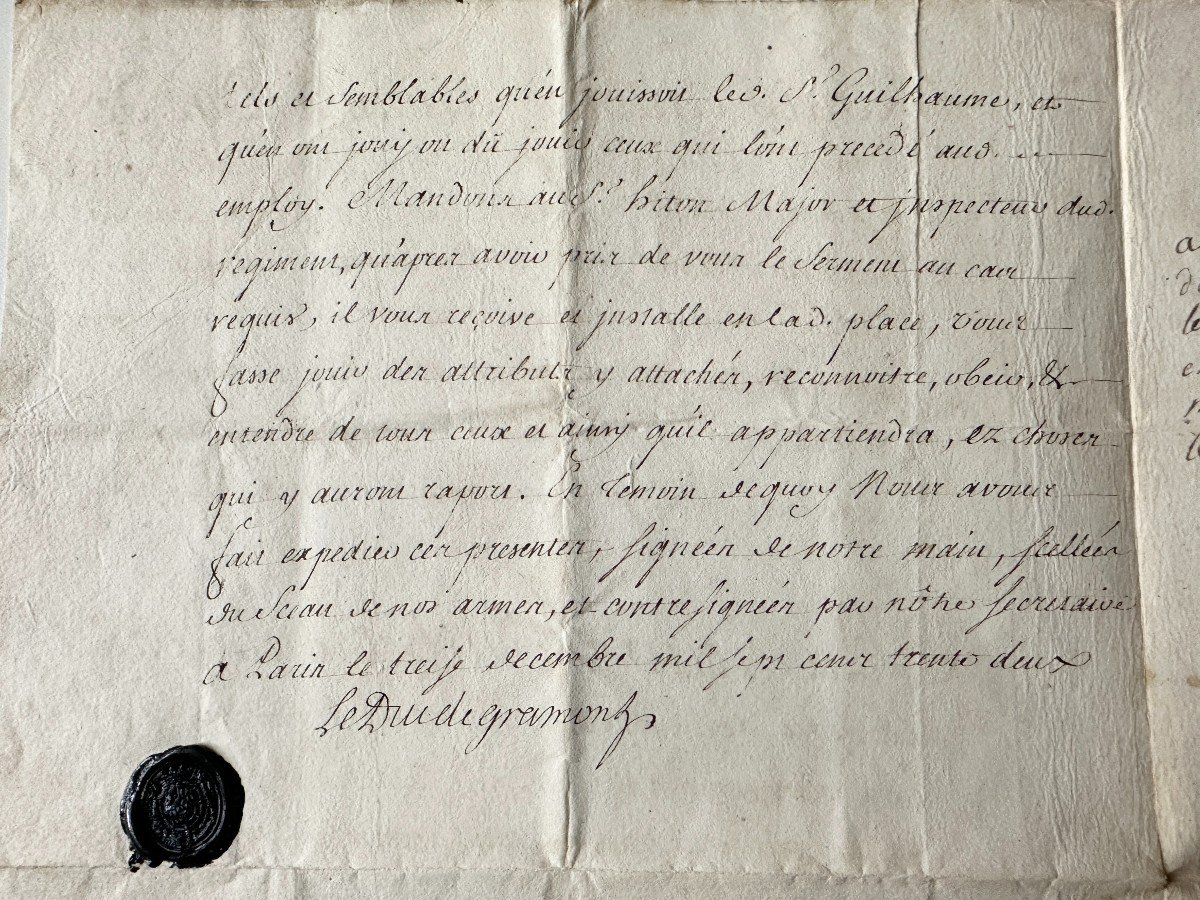 tels et semblables qu'en jouissoit led. Sr. Guilhaume, et
qu'en ont jouy ou dû jouir ceux qui l'ont precedé aud.
employ. Mandons au Sr. hiton Major et inspecteur dud.
regiment, qu'apres avoir pris de vous le serment au cas
requis, il vous reçoive et installe en lad. place, vous
fasse jouir des attributs y attachés, reconnoitre, obeir, &
entendre de tous ceux et ainsy qu'il appartiendra, ez choses
qui y auront raport. En temoin de quoy Nous avons
fait expedier ces presentes, signées de notre main, scellées
du Sceau de nos armes, et contresignées par nôtre secretaire
à Paris le treise decembre mil sept cens trente deux
Le Duc de gramont